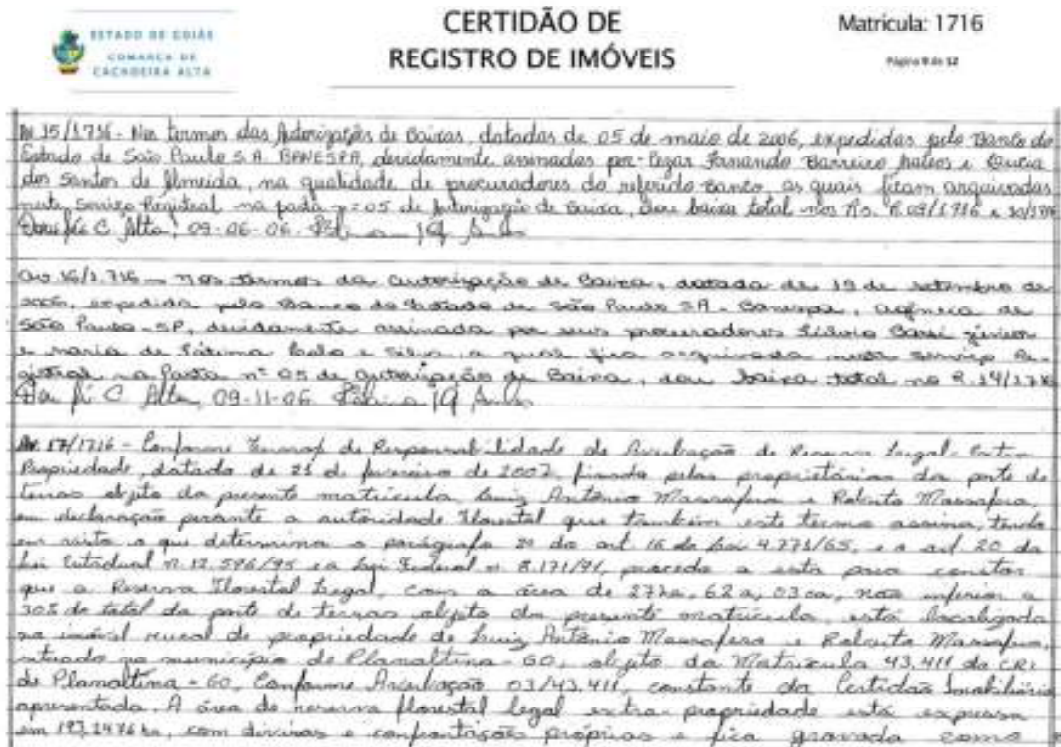 ESTADO DE GOIÁS
COMARCA DE
CACHOEIRA ALTA
CERTIDÃO DE
REGISTRO DE IMÓVEIS
Matricula: 1716
Página 9 de 12
Av 15/1716 - Nos termos das Autorizações de Baixas, datadas de 05 de maio de 2006, expedidas pelo Banco do
Estado de São Paulo S.A. BANESPA, devidamente assinadas por Cezar Fernando Barreiro e
dos Santos de Almeida, na qualidade de procuradores do referido Banco, as quais ficam arquivadas
neste Serviço Registral na pasta nº 05 de Autorização de Baixa, dou baixa total nos
Dou fé C. Alta, 09-06-06.
Av 16/1.716 - Nos termos da autorização de Baixa, datada de 19 de setembro de
2006, expedida pelo Banco do Estado de São Paulo SA - Banespa, agência de
São Paulo-SP, devidamente assinada por seus procuradores júnior
e maria de Fátima e Silva, a qual fica arquivada neste serviço Re-
gistral na Pasta nº 05 de autorização de Baixa, dou baixa total no R.14/1716
Dou fé C. Alta, 09-11-06.
Av. 17/1716 - Conforme Termo de Responsabilidade de Averbação de Reserva Legal Extra-
Propriedade, datado de 21 de fevereiro de 2007, firmado pelos proprietários da parte de
terras objeto da presente matrícula Luiz Antônio Massafera e Roberto Massafera,
em declaração perante a autoridade Florestal que também este termo assina, tendo
em vista o que determina o parágrafo 2º do art 16 da Lei 4.771/65, e o art 20 da
Lei Estadual n. 12.596/95 e a Lei Federal n. 8.171/91, procedo a esta para constar
que a Reserva Florestal Legal, com a área de 27ha, 62a, 03ca, não inferior a
30% do total da parte de terras objeto da presente matrícula, está localizada
no imóvel rural de propriedade de Luiz Antônio Massafera e Roberto Massafera,
situado no município de Planaltina-GO, objeto da Matrícula 43.411 do CRI
de Planaltina-GO, Conforme Averbação 03/43.411, constante da Certidão Imobiliária
apresentada. A área de reserva florestal legal extra-propriedade está expressa
em ha, com divisas e confrontações próprias e fica gravada como